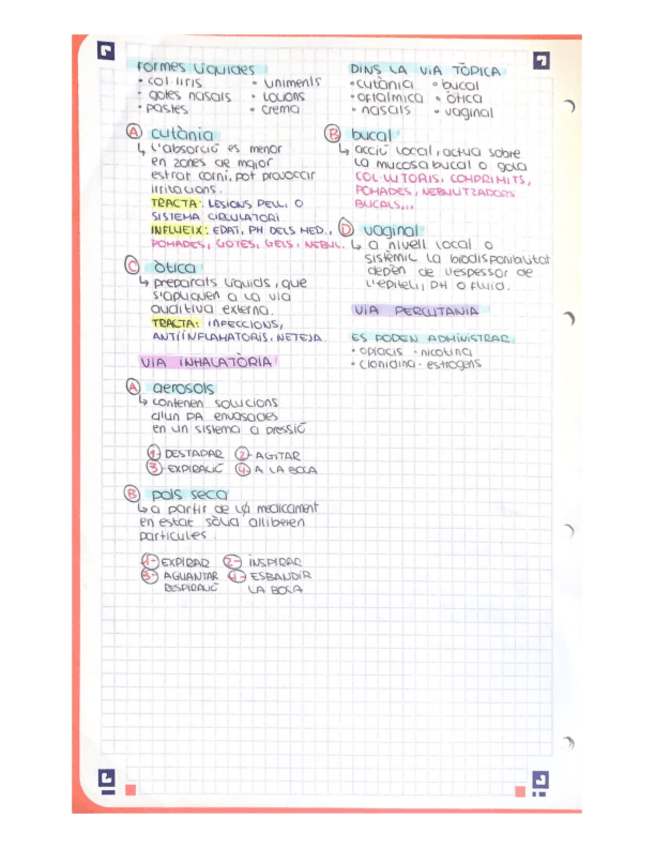 FORMES LÍQUIDES
• COL·LIRIS
• gotes nasals
• pastes
• Liniments
• Locions
• crema
DINS LA VIA TÒPICA
• cutània
• oftalmica
• nasals
• bucal
• òtica
• vaginal
A cutània
↳ L'absorció es menor
en zones de major
estrat corni, pot provocar
irritacions.
TRACTA: LESIONS PELL, O
SISTEMA CIRCULATORI
INFLUEIX: EDAT, PH DELS MED.,
POMADES, GOTES, GELS, NEBUL.
B bucal
↳ acció local, actua sobre
la mucosa bucal o gola
COL·LUTORIS, COMPRIMITS,
POMADES, NEBULITZADORS
BUCALS,...
C òtica
↳ preparats líquids, que
s'apliquen a la via
auditiva externa.
TRACTA: INFECCIONS,
ANTIINFLAMATORIS, NETEJA.
D vaginal
↳ a nivell local o
sistèmic la biodisponibilitat
depèn de l'espessor de
l'epiteli, PH o fluid.
VIA PERCUTANIA
ES PODEN ADMINISTRAR
• opiacis - nicotina
• clonidina - estrogens
VIA INHALATÒRIA
A aerosols
↳ contenen solucions
d'un PA envasades
en un sistema a pressió
1- DESTAPAR 2- AGITAR
3- EXPIRACIÓ 4- A LA BOCA
B pols seca
↳ a partir de medicament
en estat sòlid alliberen
particules.
1- EXPIRAR 2- INSPIRAR
3- AGUANTAR 4- ESBANDIR
RESPIRACIÓ LA BOCA